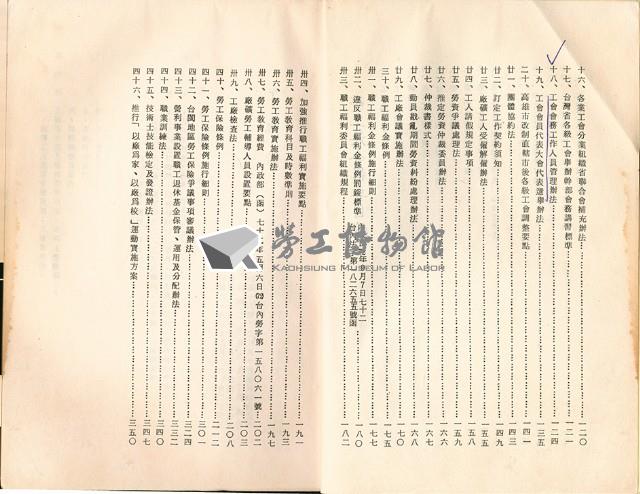 十六、各業工會分業組織省聯合會補充辦法……一二○
十七、台灣省各級工會舉辦幹部會務講習標準……一二一
十八、工會會務工作人員管理辦法……一二四
十九、工會會員代表大會代表選舉辦法……一三五
二十、高雄市改制直轄市後各級工會調整要點……一四一
廿一、團體協約法……一四三
廿二、訂定工作契約須知……一四九
廿三、廠礦工人受僱解僱辦法……一五五
廿四、工人請假規定事項……一五八
廿五、勞資爭議處理法……一五九
廿六、推定勞資仲裁委員辦法……一六六
廿七、仲裁書樣式……一六七
廿八、動員戡亂期間勞資糾紛處理辦法……一六八
廿九、工廠會議實施辦法……一七○
三十、職工福利金條例……一七六
卅一、職工福利金條例施行細則……一七七
卅二、違反職工福利金條例罰鍰標準……一八○
卅三、職工福利委員會組織規程……一八二
卅四、加強推行職工福利實施要點……一九一
卅五、勞工教育科目及時數準則……一九三
卅六、勞工教育實施辦法……一九七
卅七、勞工教育經費 內政部(函)七十年五月六日(72)台內勞字第一五八○六一號……二○二
卅八、廠礦勞工輔導人員設置要點……二○三
卅九、工廠檢查法……二○八
四十、勞工保險條例……二一二
四十一、勞工保險條例施行細則……三○一
四十二、台閩地區勞工保險爭議事項審議辦法……三二四
四十三、營利事業設置職工退休基金保管、運用及分配辦法……三三二
四十四、職業訓練法……三四○
四十五、技術士技能檢定及發證辦法……三四七
四十六、推行「以廠爲家、以廠爲校」運動實施方案……三五○
勞工博物館
KAOHSIUNG MUSEUM OF LABOR